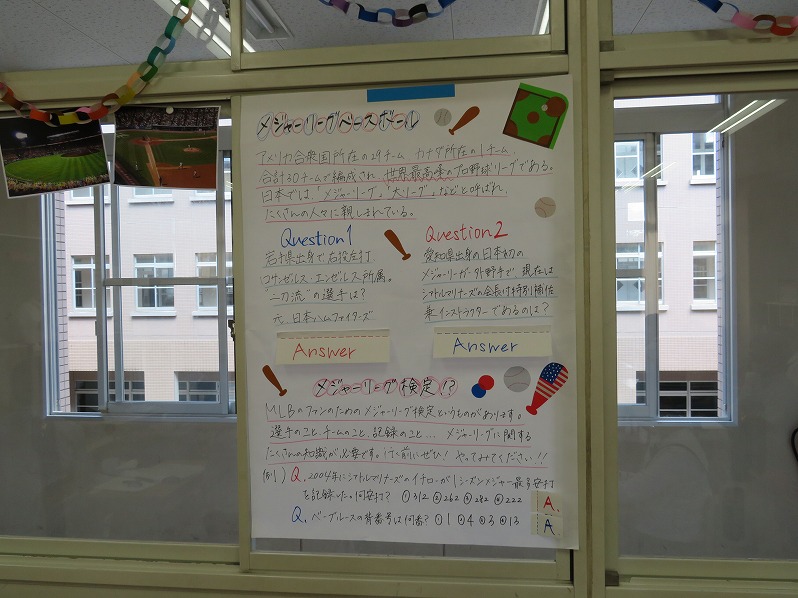 メジャーリーグベースボール
アメリカ合衆国所在の29チーム、カナダ所在の1チーム、
合計30チームで編成され、世界最高峰のプロ野球リーグである。
日本では「メジャーリーグ」「大リーグ」などと呼ばれ、
たくさんの人々に親しまれている。
Question1
岩手県出身で右投左打
ロサンゼルス・エンゼルス所属。
"二刀流"の選手は?
元、日本ハムファイターズ
Answer
Question2
愛知県出身の日本初の
メジャーリーガー外野手で、現在は
シアトルマリナーズの会長付特別補佐
兼インストラクターであるのは?
Answer
メジャーリーグ検定!?
MLBのファンのためのメジャーリーグ検定というものがあります。
選手のこと、チームのこと、記録のこと... メジャーリーグに関する
たくさんの知識が必要です。行く前にぜひ!やってみてください!!
例) Q. 2004年にシアトルマリナーズのイチローが1シーズンメジャー最多安打
を記録した。何安打? ①312 ②262 ③242 ④222
A.
Q. ベーブルースの背番号は何番? ①1 ②4 ③3 ④13
A.